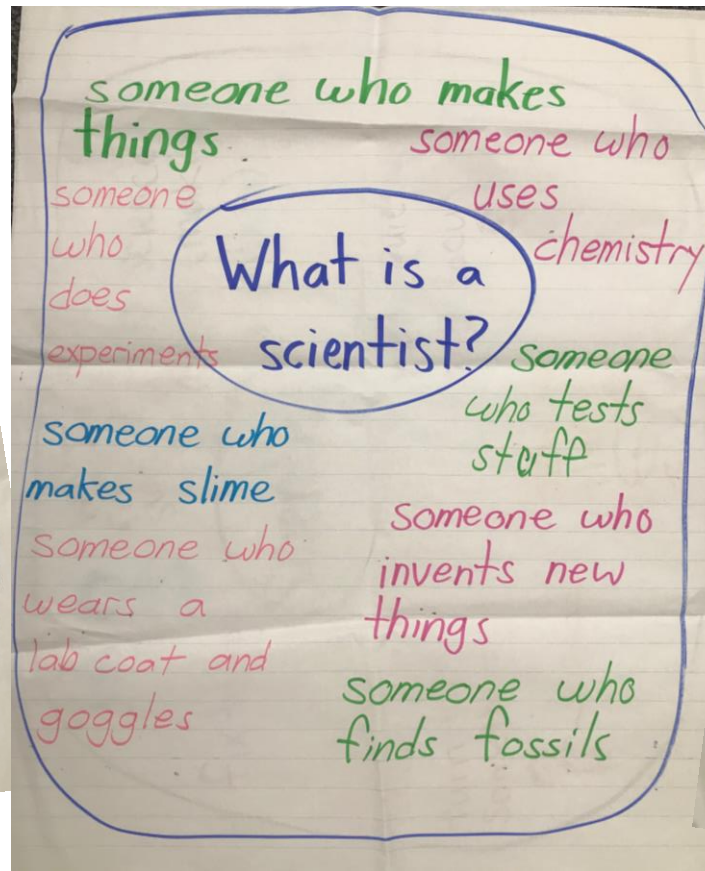 someone who makes
things
someone who
uses
chemistry
someone
who
does
experiments
What is a
scientist?
someone
who tests
stuff
someone who
makes slime
someone who
invents new
things
someone who
wears a
lab coat and
goggles
someone who
finds fossils